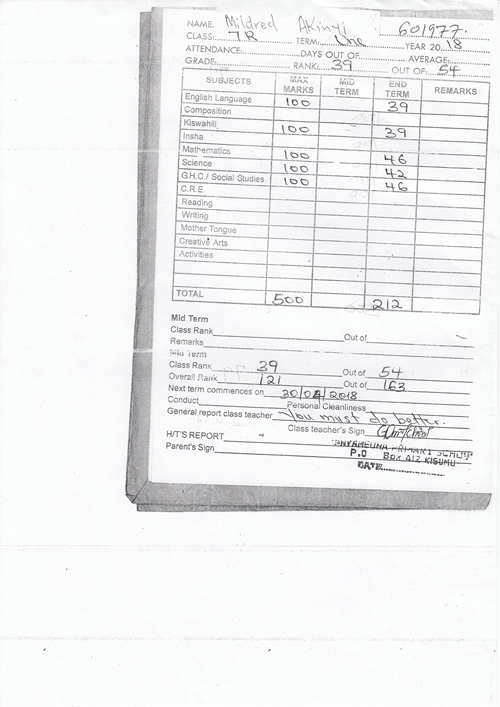 NAME. Mildred Akinyi 601977.
CLASS: 7R TERM: One YEAR 2018
ATTENDANCE: DAYS OUT OF AVERAGE:
GRADE: RANK: 39 OUT OF: 54
SUBJECTS MAX MARKS MID TERM END TERM REMARKS
English Language 100 39
Composition
Kiswahili 100 39
Insha
Mathematics 100 46
Science 100 42
G.H.C./ Social Studies 100 46
C.R.E.
Reading
Writing
Mother Tongue
Creative Arts
Activities
TOTAL 500 212
Mid Term
Class Rank Out of
Remarks
Mid Term
Class Rank 39 Out of 54
Overall Rank 121 Out of 163
Next term commences on 30/04/2018
Conduct Personal Cleanliness
General report class teacher You must do better.
Class teacher's Sign
H/T'S REPORT PRIMARY
Parent's Sign P.O Box 412 KISUMU
DATE